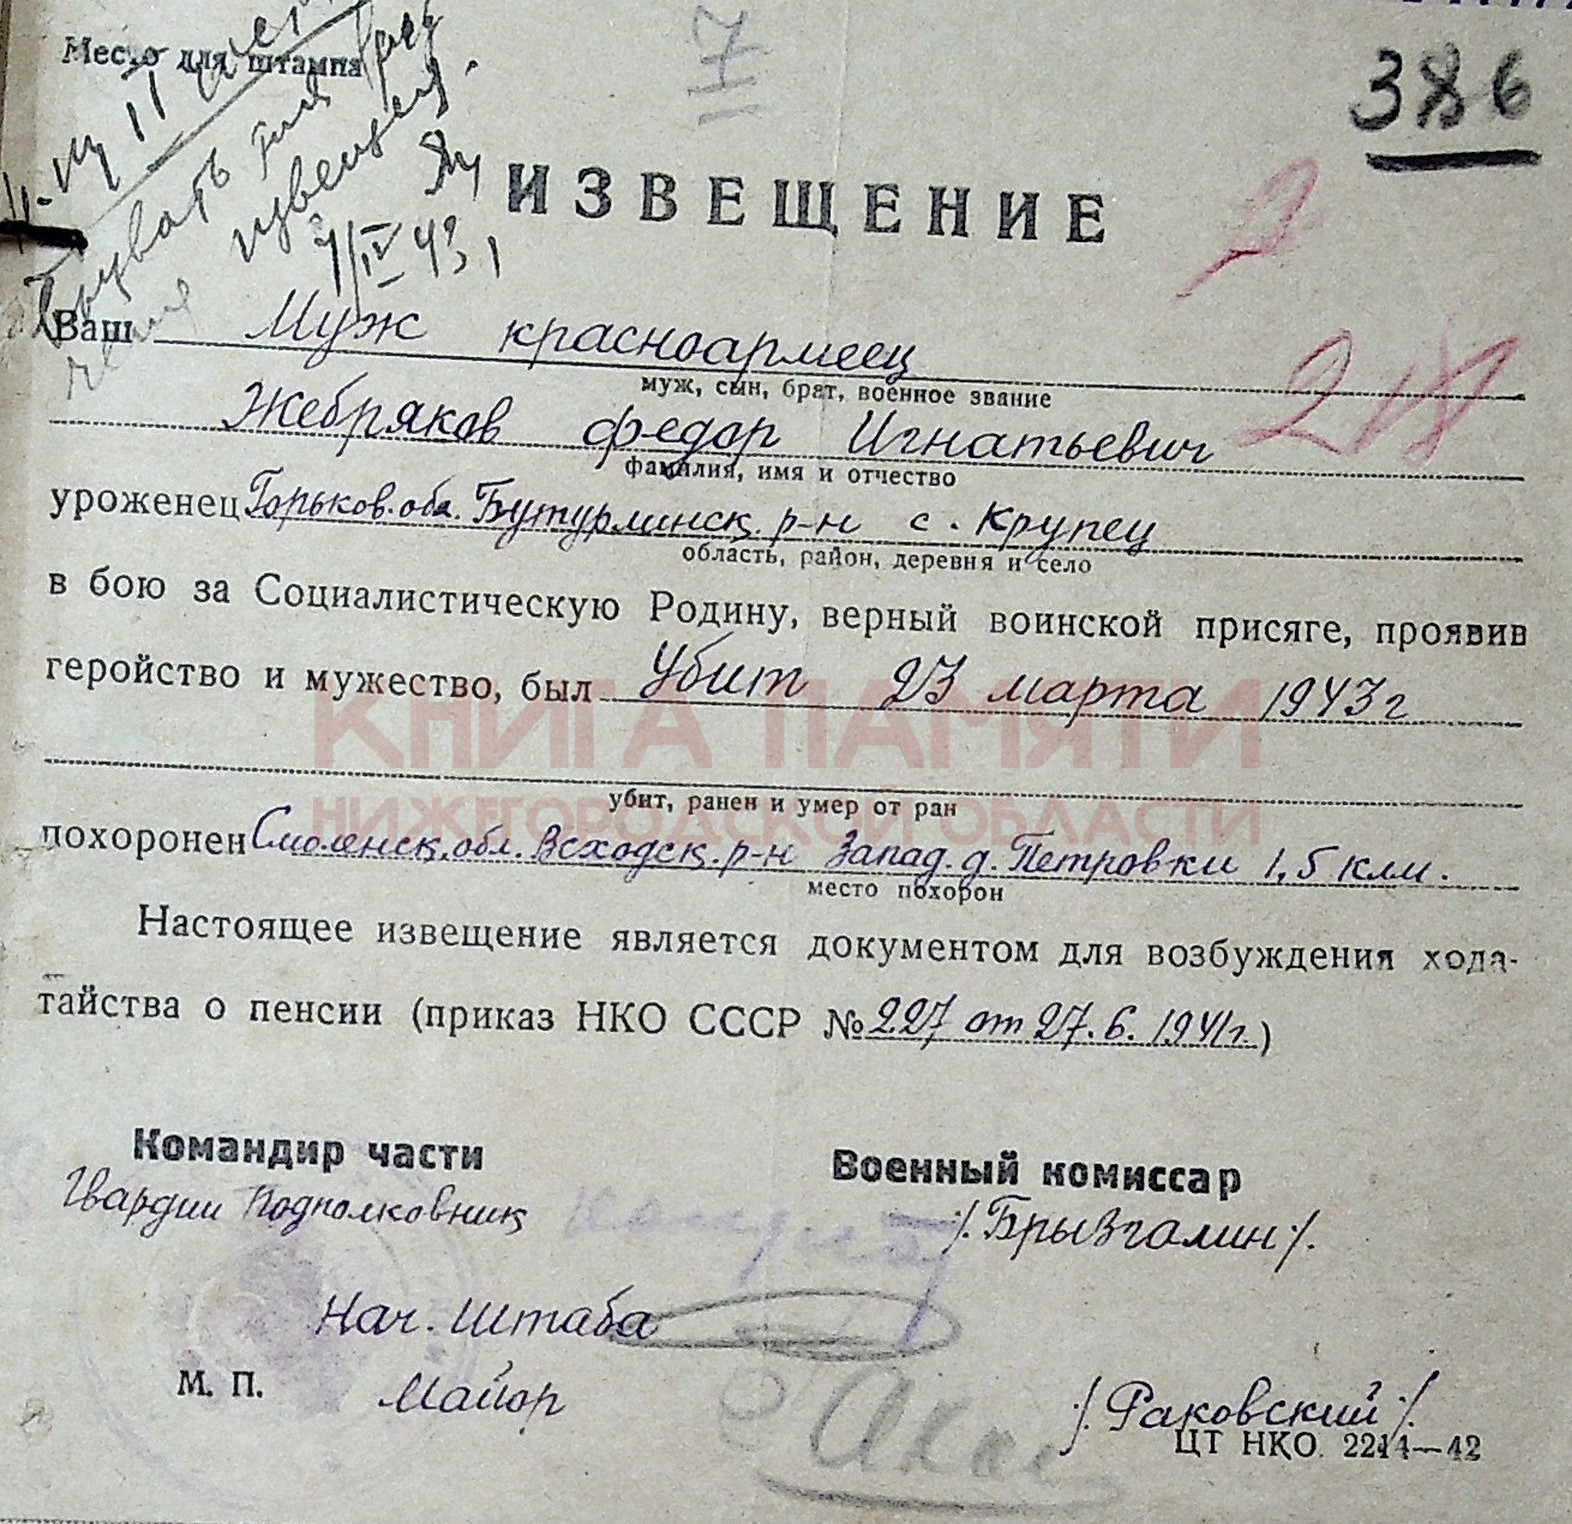 Место для штампа
386
ИЗВЕЩЕНИЕ
извещен.
7/IV 43
Ваш Муж красноармеец
муж, сын, брат, военное звание
Жебряков Федор Игнатьевич
фамилия, имя и отчество
уроженец Горьков. обл. Бутурлинск. р-н с. Крупец
область, район, деревня и село
в бою за Социалистическую Родину, верный воинской присяге, проявив
геройство и мужество, был Убит 23 марта 1943 г
КНИГА ПАМЯТИ
убит, ранен и умер от ран
НИЖЕГОРОДСКОЙ ОБЛАСТИ
похоронен Смоленск. обл. Всходск. р-н Запад. д. Петровки 1,5 клм.
место похорон
Настоящее извещение является документом для возбуждения хода-
тайства о пенсии (приказ НКО СССР № 227 от 27.6.1941г.)
Командир части
Военный комиссар
Гвардии Подполковник
/. Брызгалин ./.
Нач. Штаба
М. П. Майор
/. Раковский ./.
ЦТ НКО 2214—42